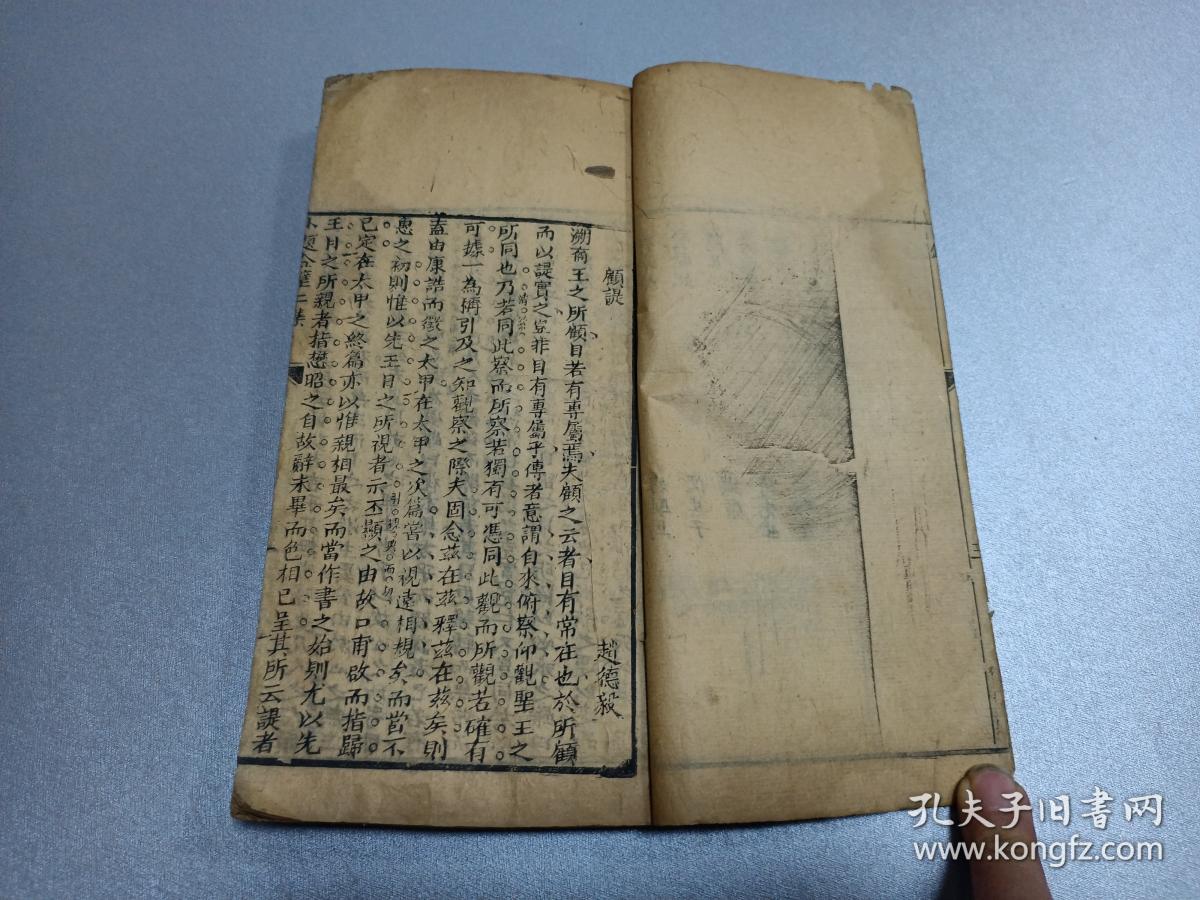 顧諟
趙德毅
溯商王之所顧目若有專屬焉夫顧之云者目有常在也於所顧
而以諟實之豈非目有專屬乎傳者意謂自來俯察仰觀聖王之
所同也乃若同此察而所察若獨有可憑同此觀而所觀若確有
可據一為稱引及之知觀察之際夫固念茲在茲釋茲在茲矣則
蓋由康誥而徵之太甲在太甲之次篇嘗以視遠相規矣而當不
惠之初則惟以先王目之所視者示丕顯之由故口甫啟而指歸
已定在太甲之終篇亦以惟親相最矣而當作書之始則尤以先
王目之所親者指懋昭之自故辭未畢而色相已呈其所云諟者
小題 二集
孔夫子旧书网
www.kongfz.com